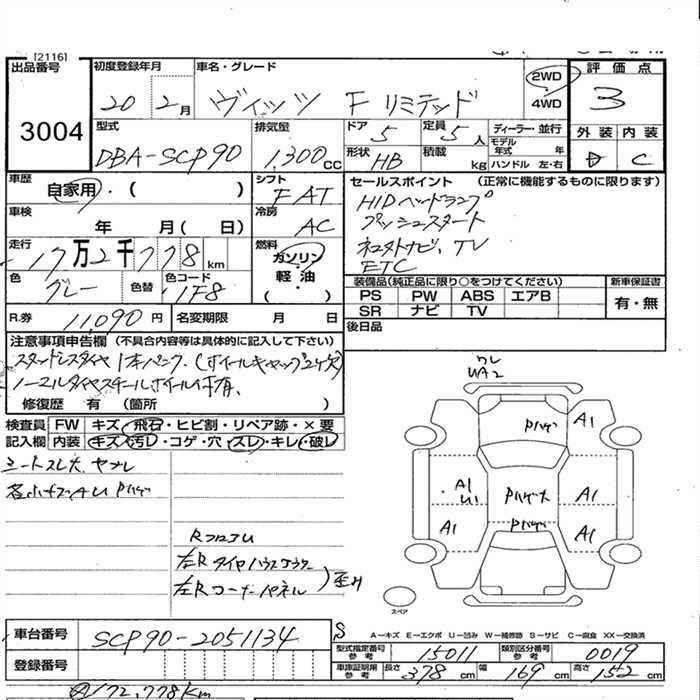 [2116]
出品番号 初度登録年月 車名・グレード 2WD 評価点
20 2月 ヴィッツ F リミテッド 4WD 3
3004
型式 排気量 ドア 定員 ディーラー・並行 外装 内装
DBA-SCP90 1,300cc 5 5人 モデル年式 年
形状 HB 積載 kg ハンドル 左・右 D C
車歴 自家用・( ) シフト FAT セールスポイント (正常に機能するものに限ります)
車検 年 月( 日) 冷房 AC
HIDヘッドランプ
プッシュスタート
走行 17万2千778km 燃料 ガソリン・軽油・( )
ナビ, TV
ETC
色 グレー 色替 色コード 1F8
装備品(純正品に限り○をつけてください) 新車保証書
PS PW ABS エアB 有・無
SR ナビ TV
R.券 11,090円 名変期限 月 日 後日品
注意事項申告欄 (不具合内容等は具体的に記入して下さい)
スタッドレスタイヤ 1本パンク. (ホイールキャップ2ヶ欠)
ノーマルタイヤスチールホイール付有.
修復歴 有 (箇所 )
検査員記入欄 FW キズ・飛石・ヒビ割・リペア跡・×要
内装 キズ・汚レ・コゲ・穴・スレ・キレ・破レ
シートスレ大. ヤブレ
各 AU Pハゲ
RフロアU
左Rタイヤハウスインナー
左Rコーナーパネル
ワレ
UA2
Pハゲ A1
A1 U1 Pハゲ大 A1
A1 Pハゲ A1
スペア
S
A−キズ E−エクボ U−凹み W−補修跡 S−サビ C−腐食 XX−交換済
車台番号 SCP90-2051134
型式指定番号 参考 15011 類別区分番号 参考 0019
登録番号
車庫証明用 参考 長さ 378cm 幅 169cm 高さ 152cm
172,778km